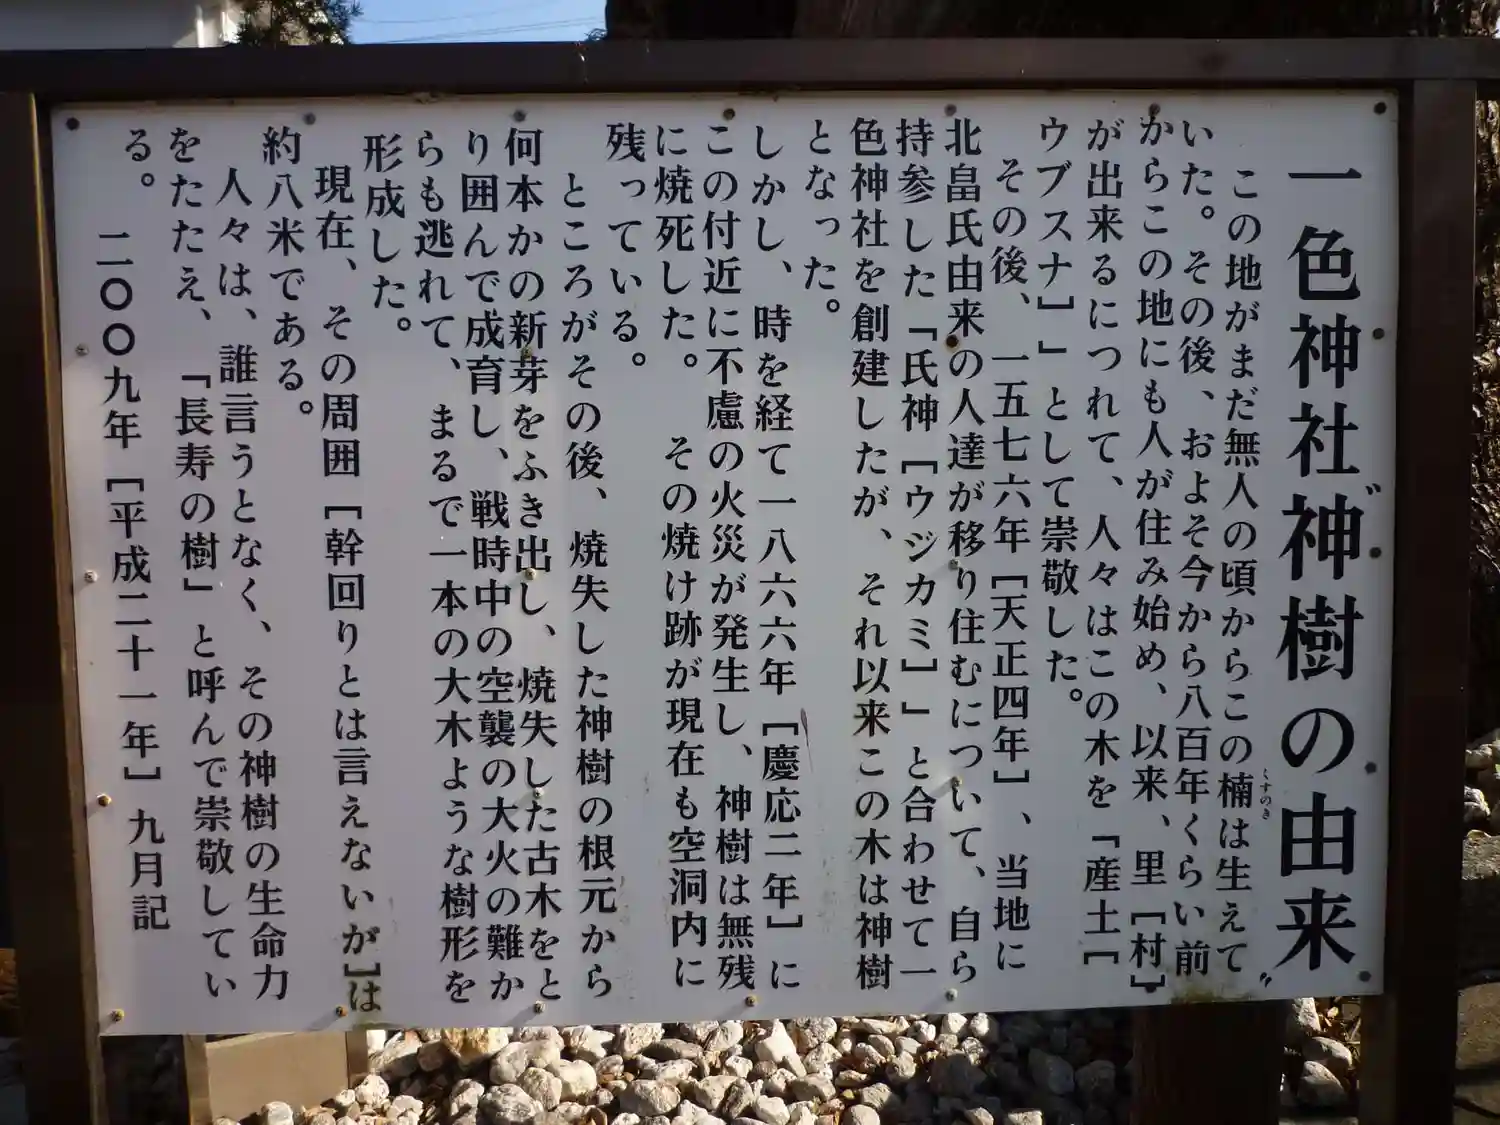 一色神社〝神樹の由来〟
この地がまだ無人の頃からこの楠は生えて
くすのき
いた。その後、およそ今から八百年くらい前
からこの地にも人が住み始め、以来、里［村］
が出来るにつれて、人々はこの木を「産土［
ウブスナ］」として崇敬した。
その後、一五七六年［天正四年］、当地に
北畠氏由来の人達が移り住むについて、自ら
持参した「氏神［ウジカミ］」と合わせて一
色神社を創建したが、それ以来この木は神樹
となった。
しかし、時を経て一八六六年［慶応二年］に
この付近に不慮の火災が発生し、神樹は無残
に焼死した。　その焼け跡が現在も空洞内に
残っている。
ところがその後、焼失した神樹の根元から
何本かの新芽をふき出し、焼失した古木をと
り囲んで成育し、戦時中の空襲の大火の難か
らも逃れて、まるで一本の大木ような樹形を
形成した。
現在、その周囲［幹回りとは言えないが］は
約八米である。
人々は、誰言うとなく、その神樹の生命力
をたたえ、「長寿の樹」と呼んで崇敬してい
る。
二〇〇九年［平成二十一年］九月記